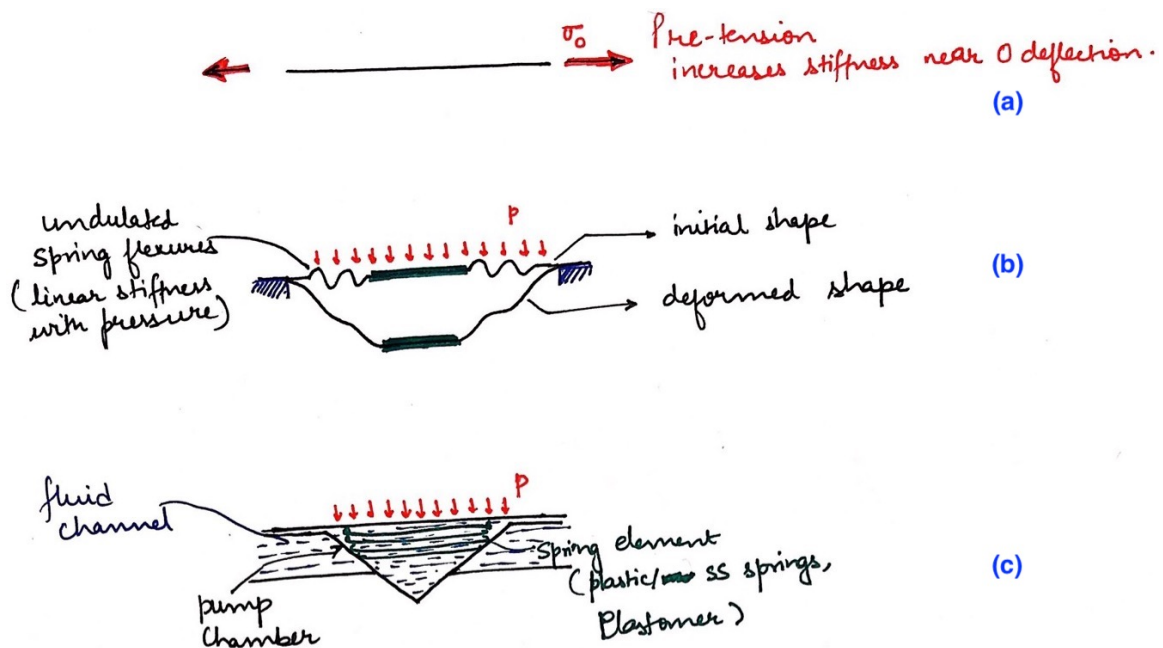 σ₀
Pre-tension
increases stiffness near 0 deflection.
(a)
undulated
spring flexures
(linear stiffness
with pressure)
P
initial shape
deformed shape
(b)
fluid
channel
P
spring element
(plastic/ SS springs,
Elastomer)
pump
chamber
(c)